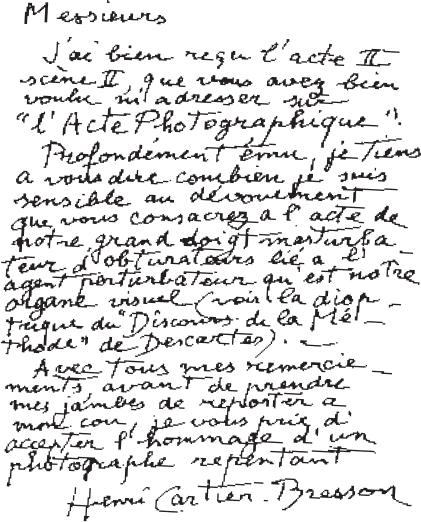 Messieurs
J'ai bien reçu l'acte II
scène II, que vous avez bien
voulu m'adresser sur
"l'Acte Photographique".
Profondément ému, je tiens
a vous dire combien je suis
sensible au dévouement
que vous consacrez a l'acte de
notre grand doigt masturba-
teur d'obturateurs lié a l'
agent perturbateur qu'est notre
organe visuel (voir la diop-
trique du "Discours de la Mé-
thode" de Descartes). -
Avec tous mes remercie-
ments, avant de prendre
mes jambes de reporter a
mon cou, je vous prie d'
accepter l'hommage d'un
photographe repentant
Henri Cartier-Bresson